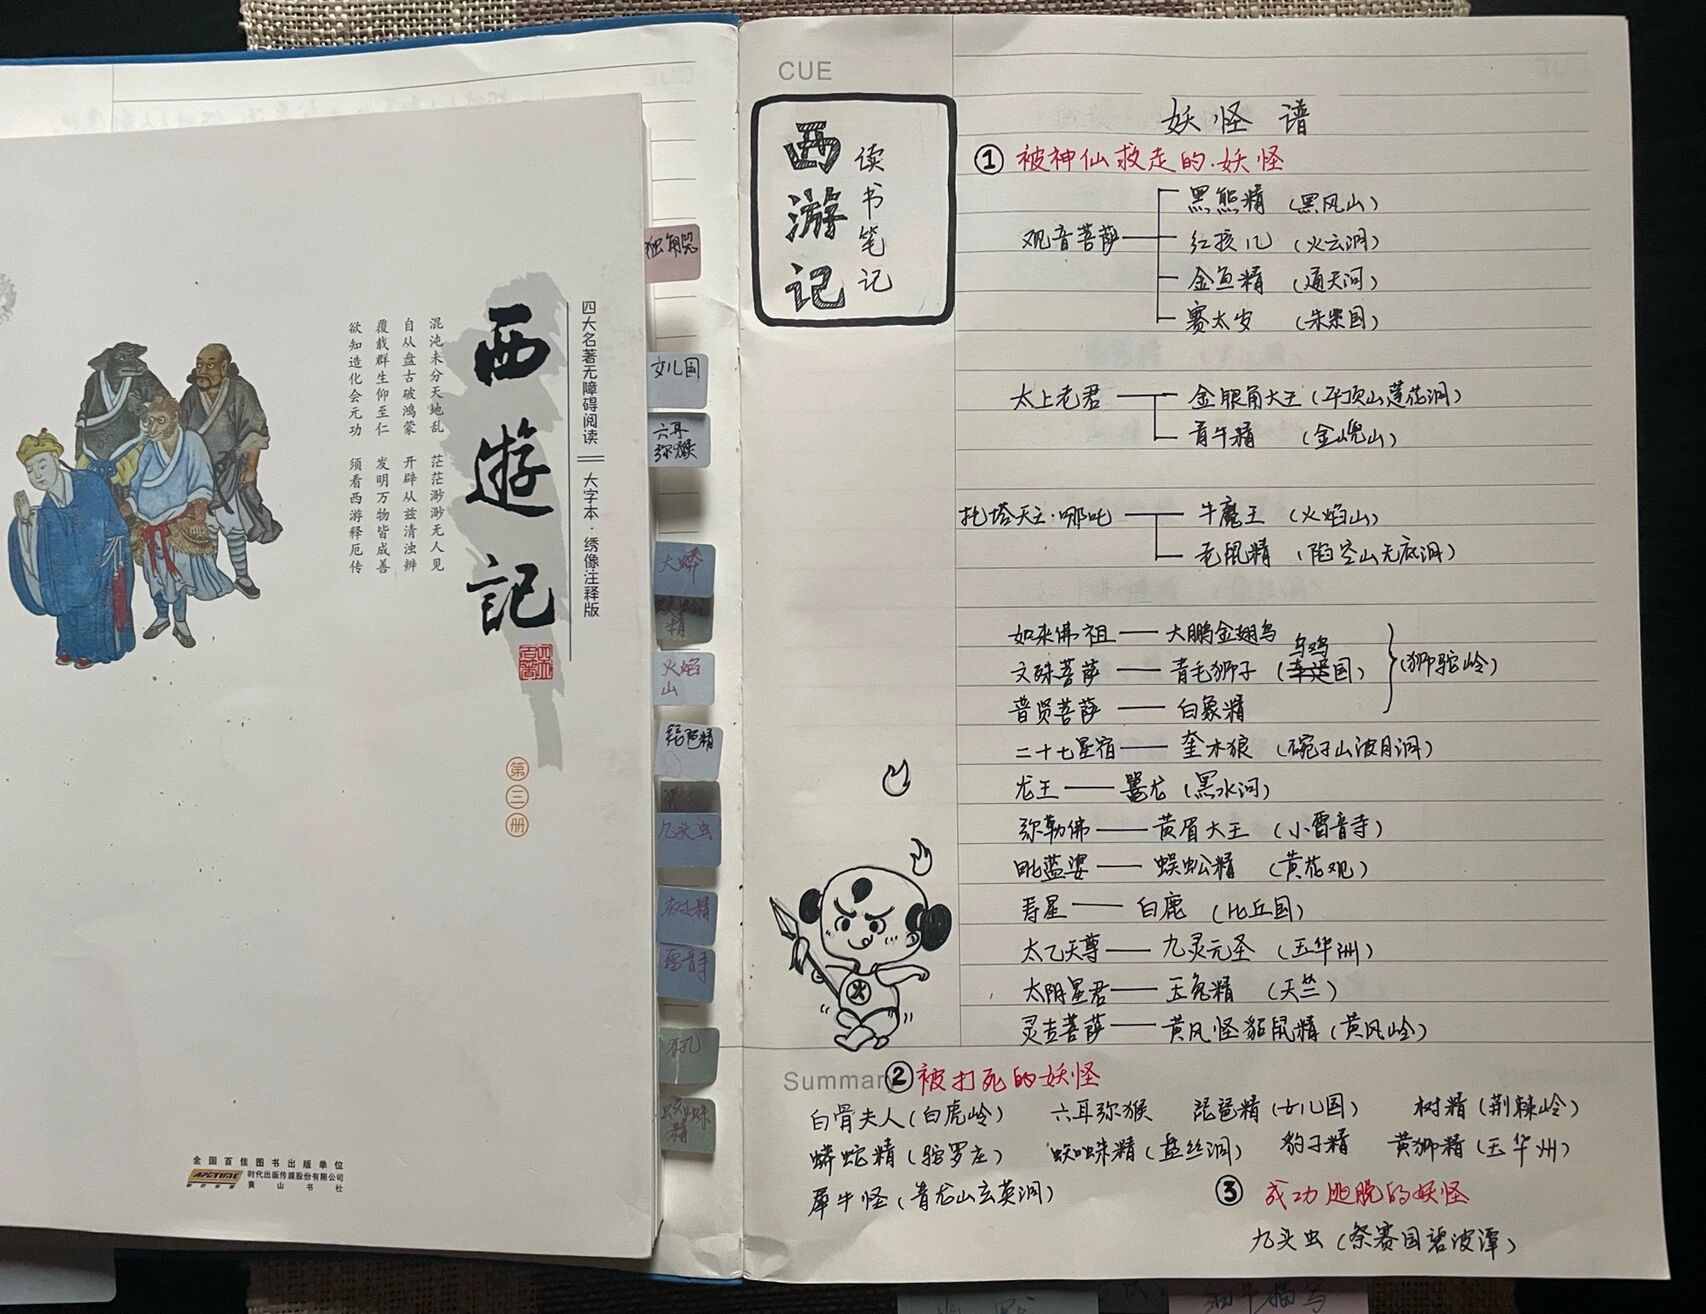 西遊記
四大名著无障碍阅读 大字本·绣像注释版
混沌未分天地乱 茫茫渺渺无人见
自从盘古破鸿蒙 开辟从兹清浊辨
覆载群生仰至仁 发明万物皆成善
欲知造化会元功 须看西游释厄传
第三册
全国百佳图书出版单位
APGTIME 时代出版传媒股份有限公司
黄山书社
女儿国
六耳
弥猴
大蟒
精
火焰
山
琵琶精
九头虫
树精
雷音寺
蜘蛛
精
CUE
西游记
读书笔记
妖怪谱
① 被神仙救走的·妖怪
观音菩萨
黑熊精(黑风山)
红孩儿(火云洞)
金鱼精(通天河)
赛太岁(朱紫国)
太上老君
金银角大王(平顶山莲花洞)
青牛精(金𠙶山)
托塔天王·哪吒
牛魔王(火焰山)
老鼠精(陷空山无底洞)
如来佛祖——大鹏金翅鸟
乌鸡
文殊菩萨——青毛狮子(车迟国)
(狮驼岭)
普贤菩萨——白象精
二十七星宿——奎木狼(碗子山波月洞)
龙王——鼍龙(黑水河)
弥勒佛——黄眉大王(小雷音寺)
毗蓝婆——蜈蚣精(黄花观)
寿星——白鹿(比丘国)
太乙天尊——九灵元圣(玉华洲)
太阴星君——玉兔精(天竺)
灵吉菩萨——黄风怪貂鼠精(黄风岭)
Summary
②被打死的妖怪
白骨夫人(白虎岭) 六耳弥猴 琵琶精(女儿国) 树精(荆棘岭)
蟒蛇精(驼罗庄) 蜘蛛精(盘丝洞) 豹子精 黄狮精(玉华州)
犀牛怪(青龙山玄英洞)
③ 成功逃脱的妖怪
九头虫(祭赛国碧波潭)